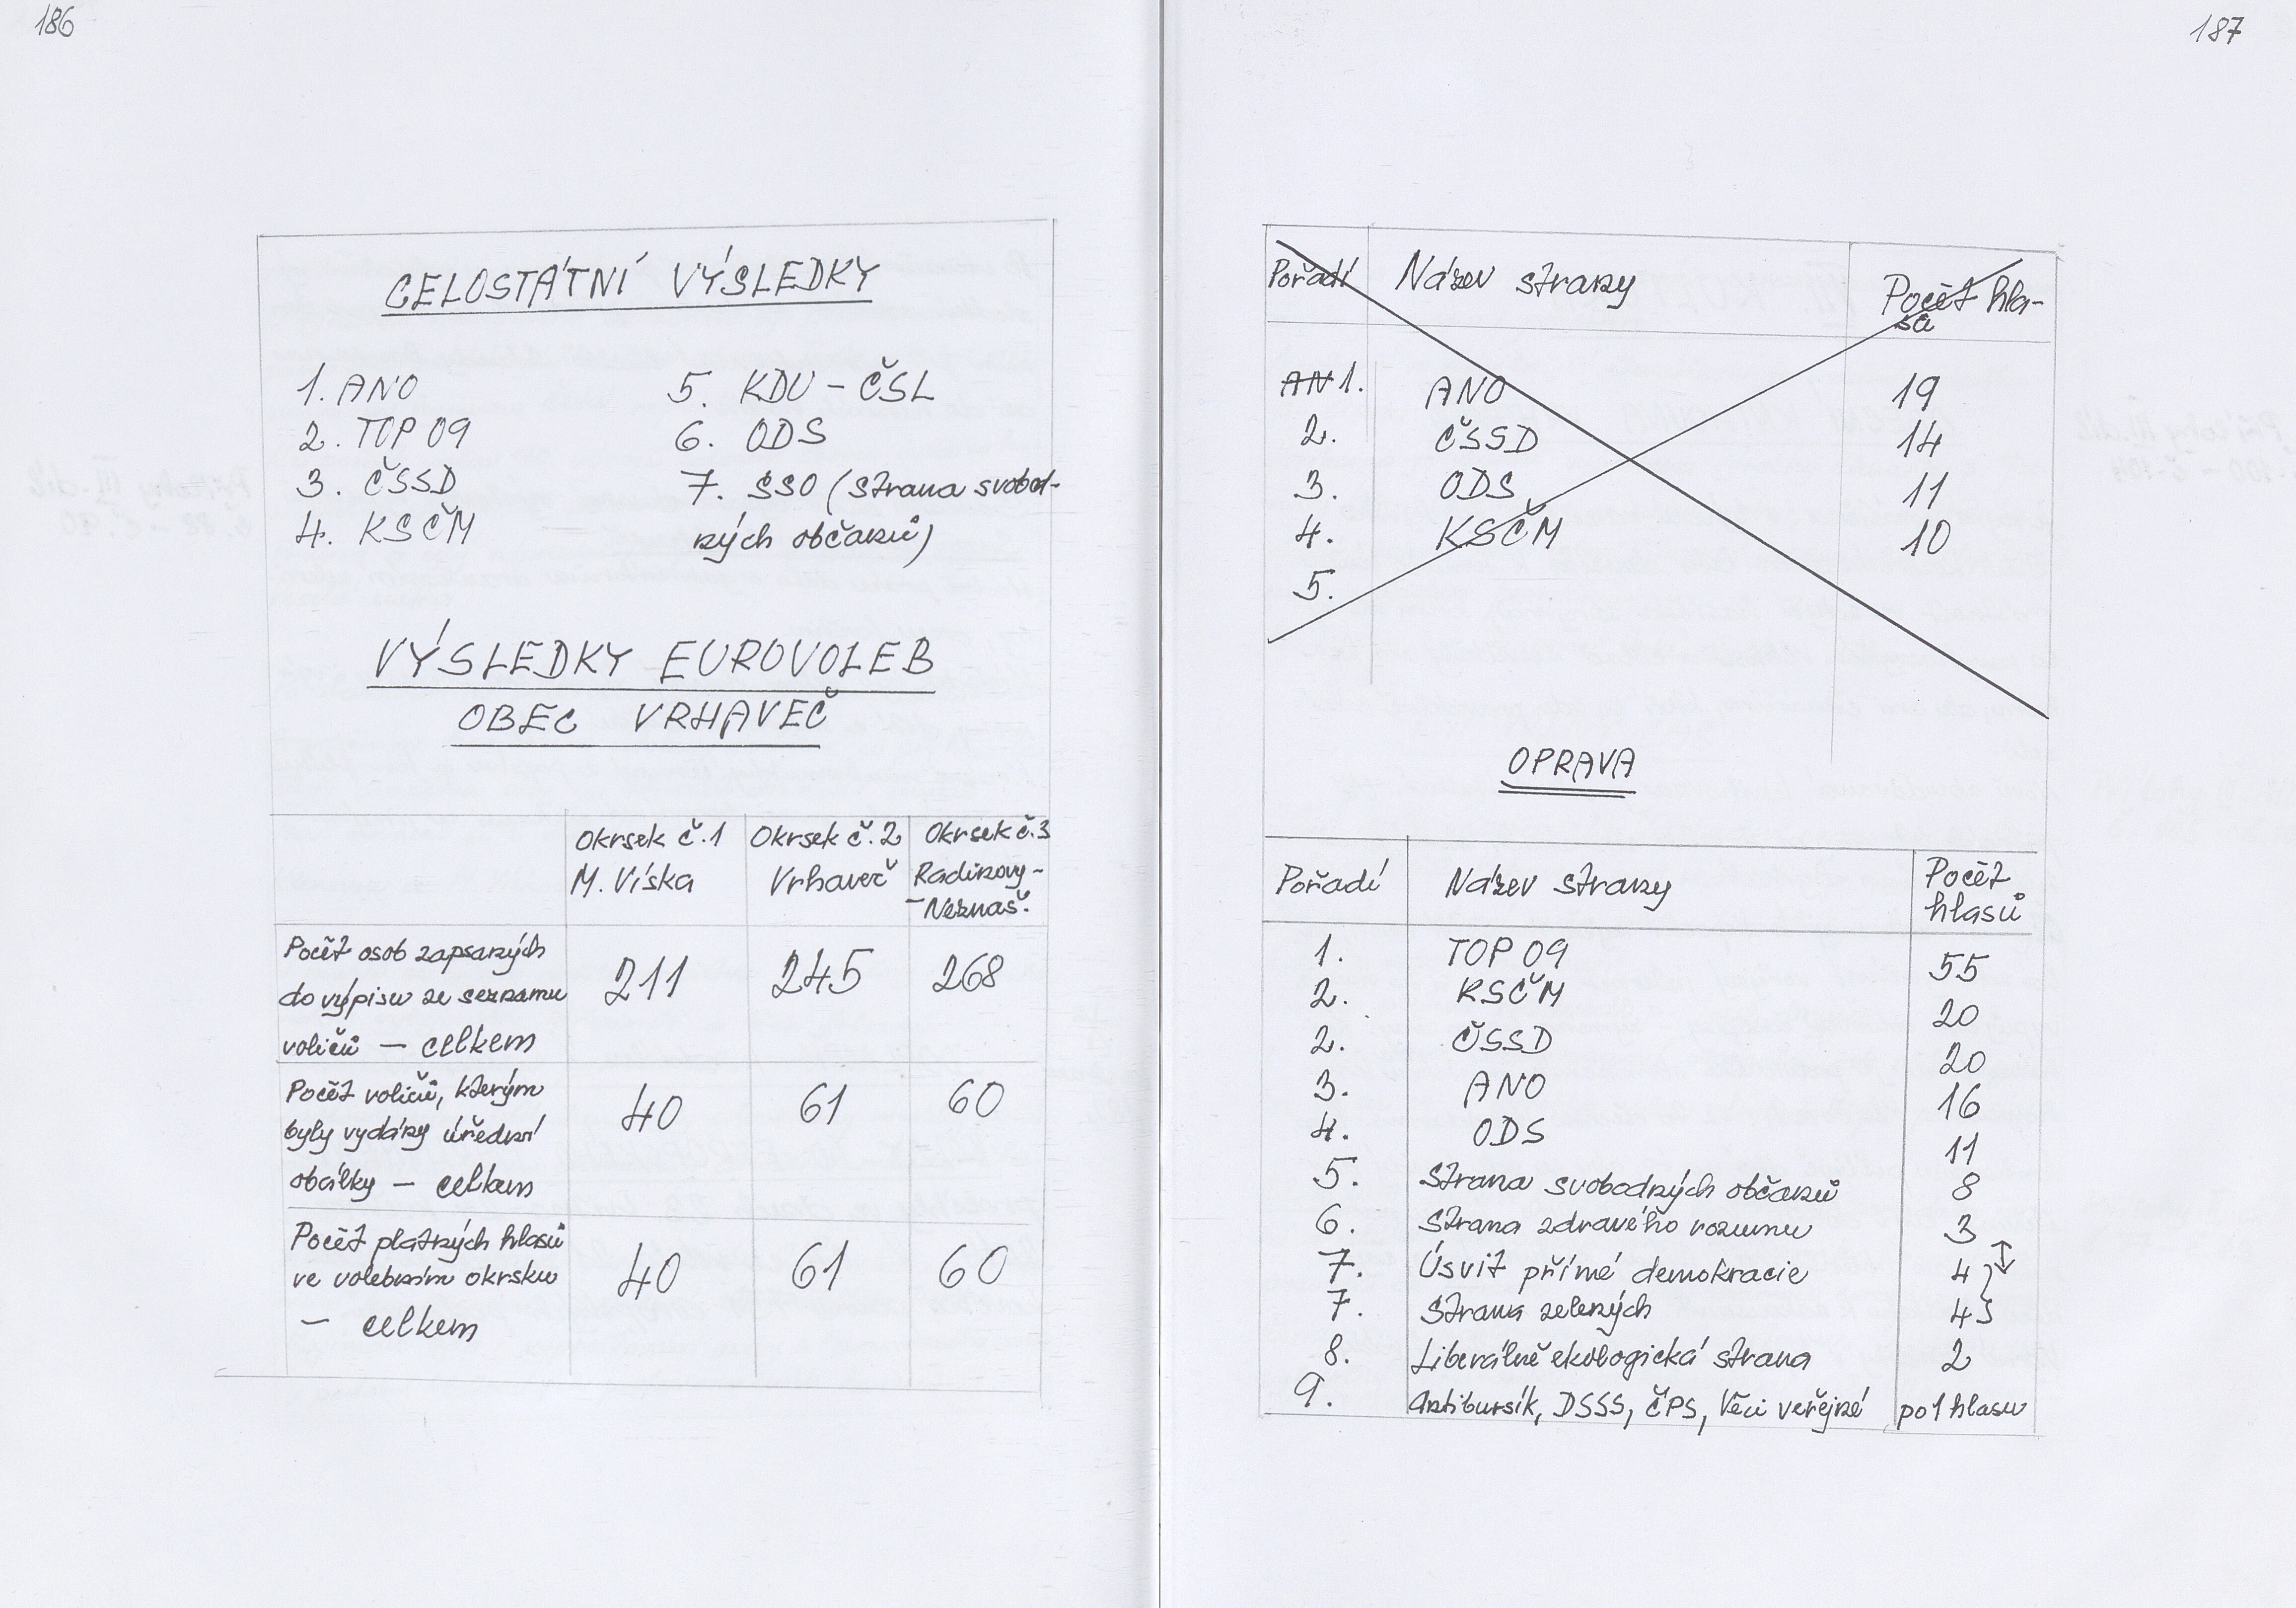 186
CELOSTÁTNÍ VÝSLEDKY
1. ANO
2. TOP 09
3. ČSSD
4. KSČM
5. KDU – ČSL
6. ODS
7. SSO (Strana svobod-
ných občanů)
VÝSLEDKY EUROVOLEB
OBEC VRHAVEČ
Okrsek č.1 Okrsek č.2 Okrsek č.3
M. Víska Vrhaveč Radinovy-
-Neznaš.
Počet osob zapsaných
do výpisu ze seznamu 211 245 268
voličů – celkem
Počet voličů, kterým
byly vydány úřední 40 61 60
obálky – celkem
Počet platných hlasů
ve volebním okrsku 40 61 60
– celkem
187
Pořadí Název strany Počet hla-
sů
AN 1. ANO 19
2. ČSSD 14
3. ODS 11
4. KSČM 10
5.
OPRAVA
Pořadí Název strany Počet
hlasů
1. TOP 09 55
2. KSČM 20
2. ČSSD 20
3. ANO 16
4. ODS 11
5. Strana svobodných občanů 8
6. Strana zdravého rozumu 3
7. Úsvit přímé demokracie 4
7. Strana zelených 4
8. Liberálně ekologická strana 2
9. Antibursík, DSSS, ČPS, Věci veřejné po 1 hlasu